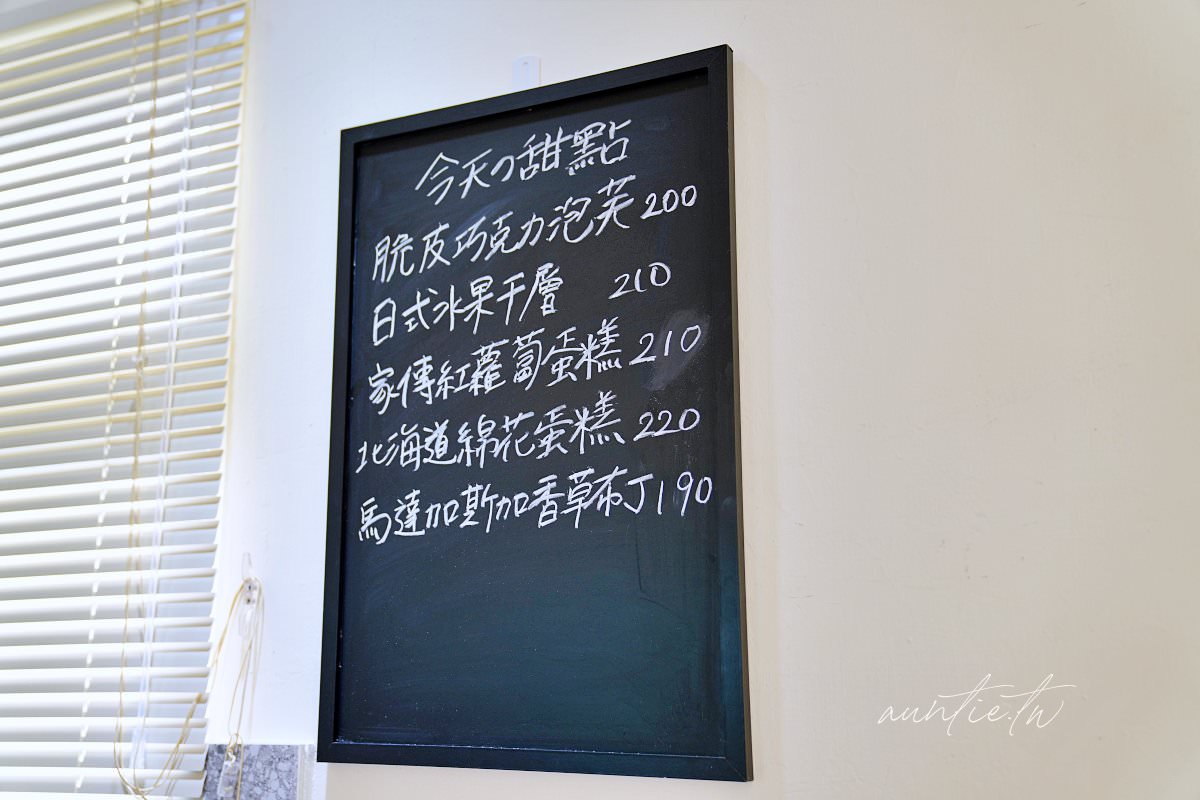 今天の甜點
脆皮巧克力泡芙200
日式水果千層 210
家傳紅蘿蔔蛋糕210
北海道綿花蛋糕220
馬達加斯加香草布丁190
auntie.tw